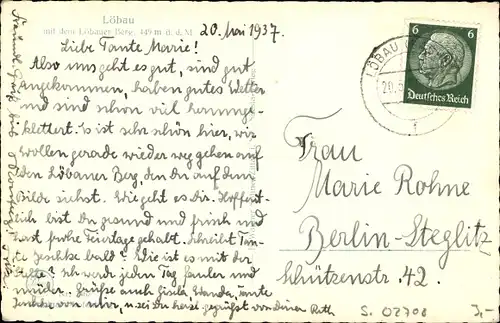 Löbau
mit dem Löbauer Berg, 449 m ü. d. M.
20. Mai 1937.
Liebe Tante Marie!
Also uns geht es gut, sind gut
angekommen, haben gutes Wetter
und sind schon viel herumge-
klettert. Es ist sehr schön hier, wir
wollen gerade wieder weg gehen auf
den Löbauer Berg, den Du auf dem
Bilde siehst. Wie geht es Dir. Hoffent-
lich bist Du gesund und frisch und
hast frohe Feiertage gehabt. Schreibt Tan-
te Jeschke bald? Wie ist es mit der
Ich werde jeden Tag fauler und
müder. Grüße auch Gisela, Wanda, Tante
Jeschke von mir, u. sei Du herzl. gegrüßt von Deiner Ruth
LÖBAU
20.5
6 6
Deutsches Reich
Frau
Marie Rohne
Berlin-Steglitz
Schützenstr. 42.
S. 02708
3,-